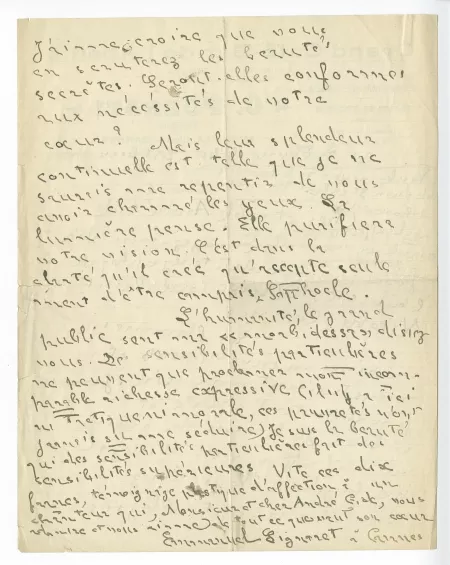 J'aime croire que vous
en scruterez les beautés
secrètes. Seront-elles conformes
aux nécessités de votre
cœur ? Mais leur splendeur
continuelle est telle que je ne
saurais me repentir de vous
avoir charmé les yeux. La
lumière pense. Elle purifiera
votre vision. C'est dans la
clarté qu'il créé qu'accepte seule
ment d'être compris, Sophocle.
L'humanité, le grand
public sent ma
vous. Des sensibilités particulières
ne peuvent que proclamer mon incom-
parable richesse expressive
ni morale, ces pruretés n'ont
jamais su me séduire) Je suis la beauté
qui des sensibilités particulières fait des
sensibilités supérieures. Vite ces dix
francs, témoignage d'affection à un
chanteur qui, Monsieur et cher André Gide, vous
et vous aime de tout ce que veut son cœur
Emmanuel Signoret à Cannes